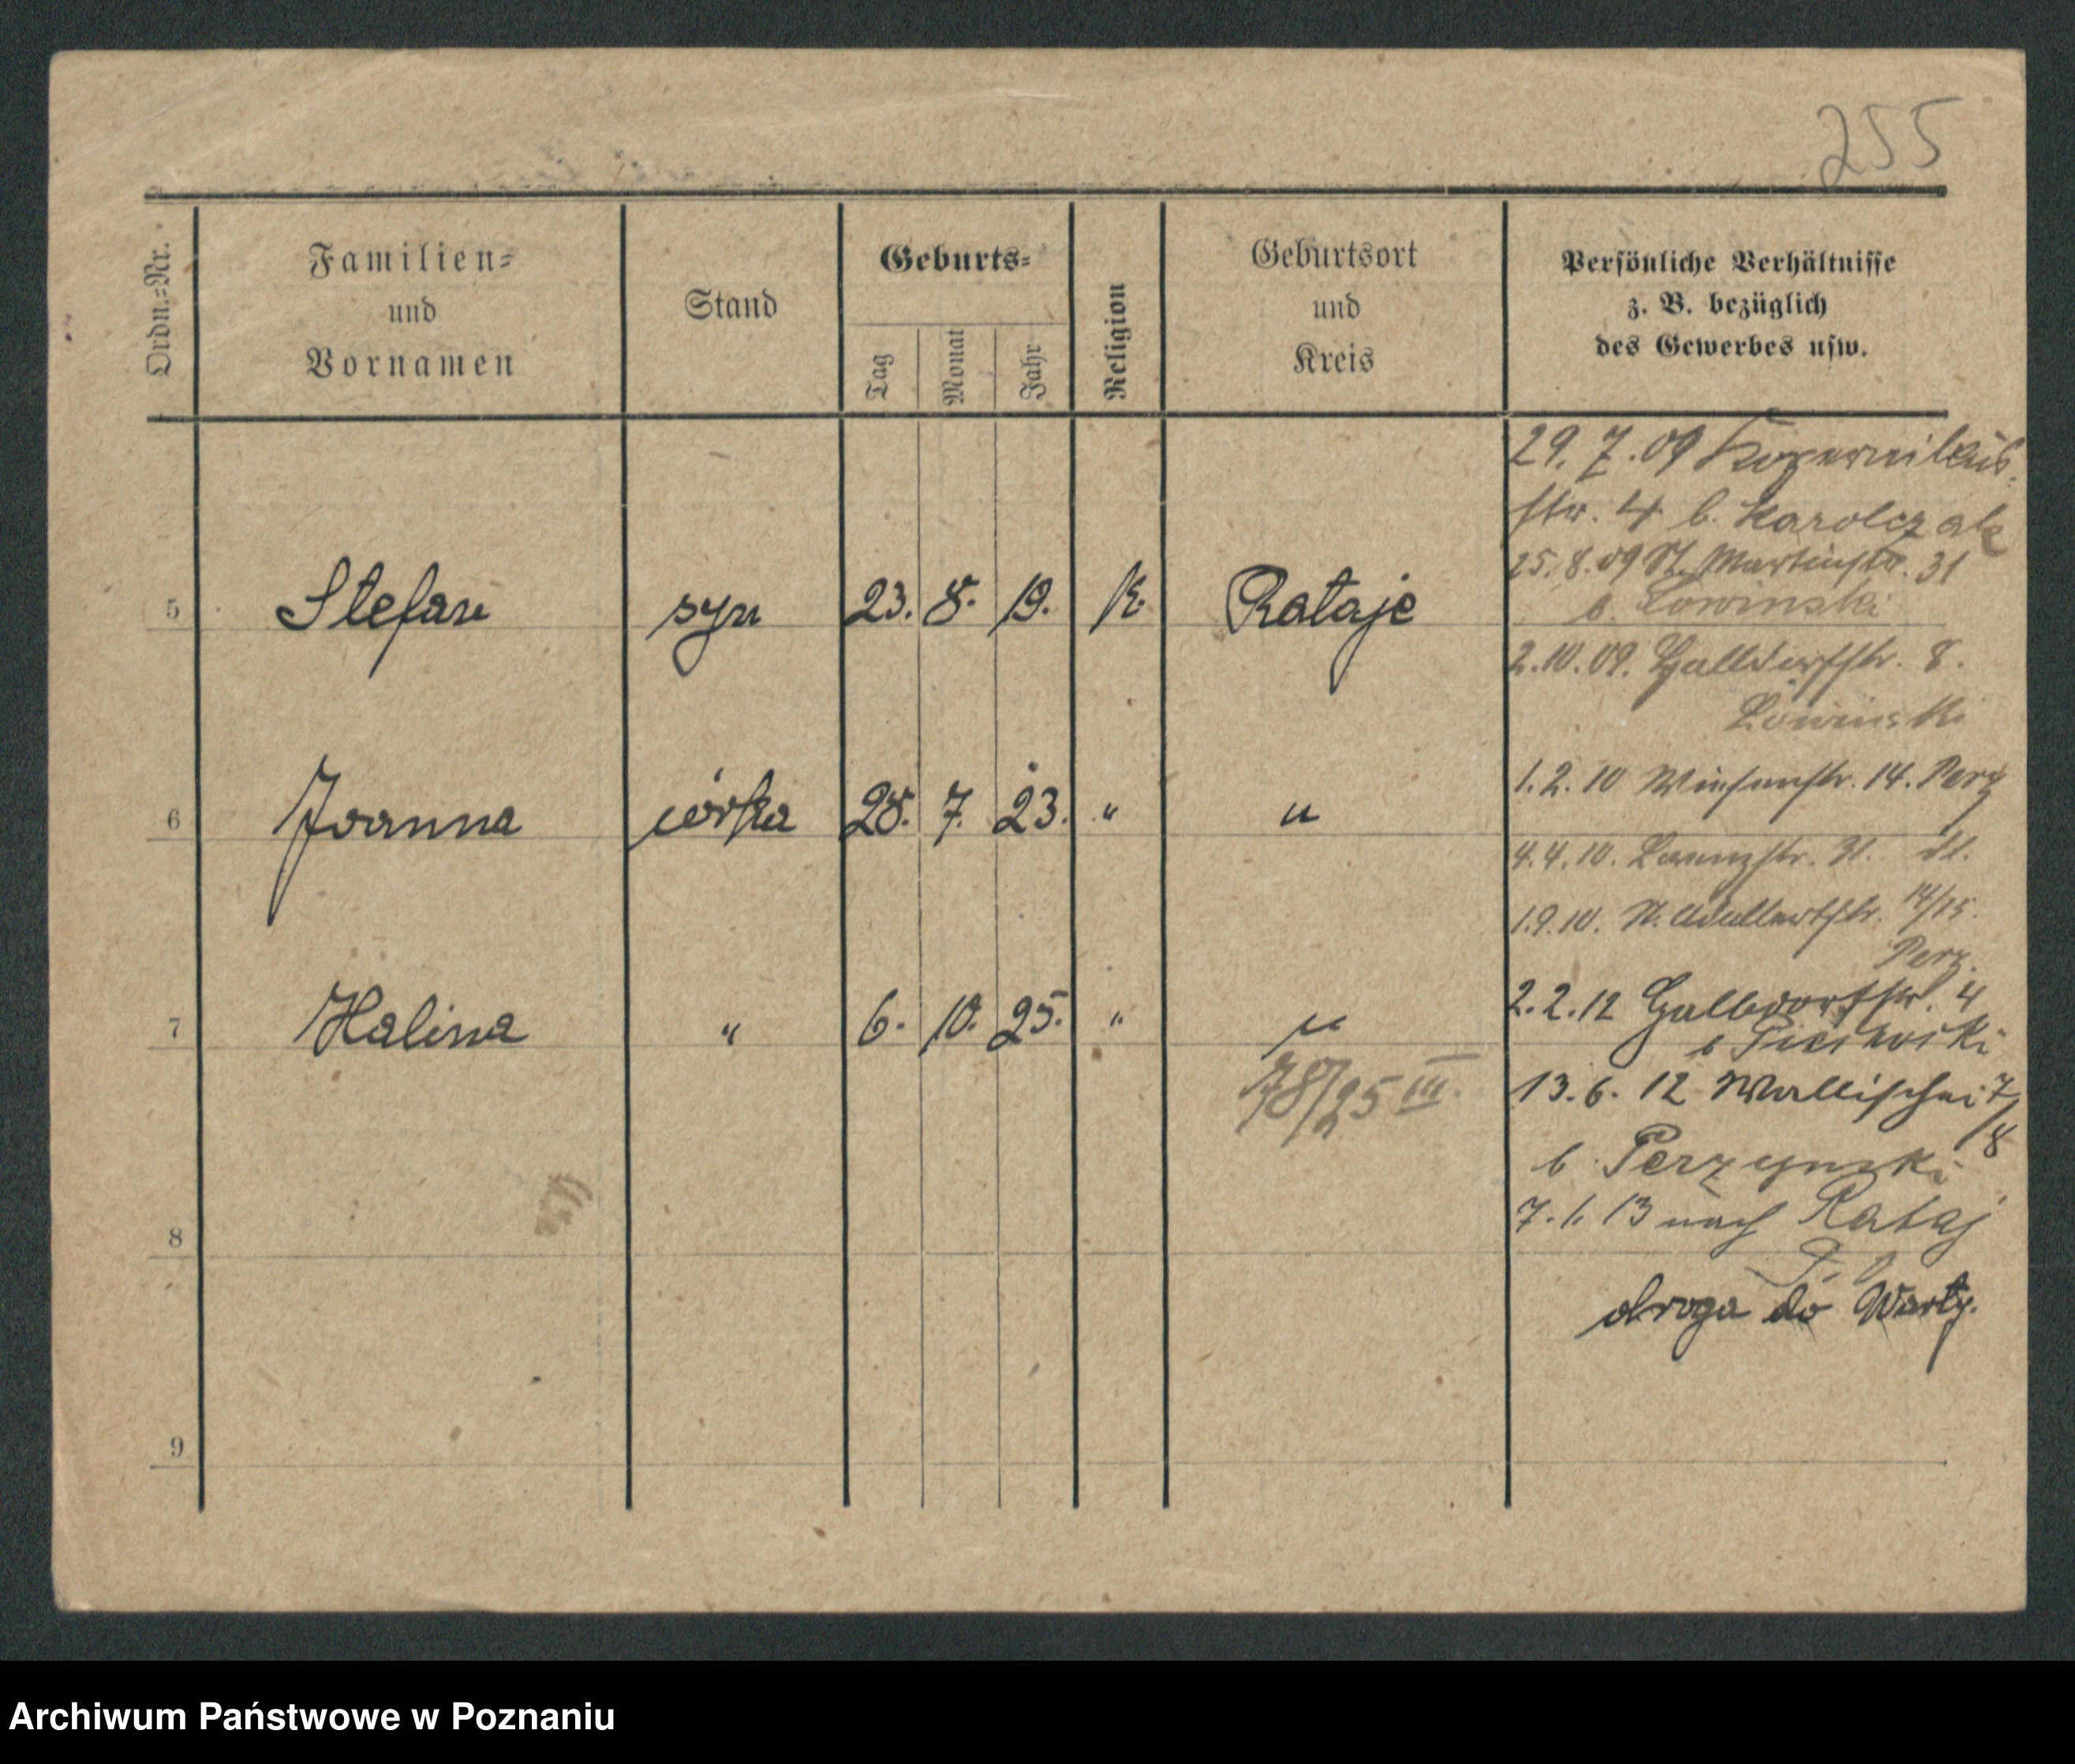 255
Ordn.=Nr.
Familien=
und
Vornamen
Stand
Geburts=
Tag
Monat
Jahr
Religion
Geburtsort
und
Kreis
Persönliche Verhältnisse
z. B. bezüglich
des Gewerbes usw.
29. 7. 09 Kopernikus
str. 4 b. Karolczak
25. 8. 09 St. Martinstr. 31
b. Lowinski
5 Stefan syn 23. 8. 19. K. Rataje
2. 10. 09. Halldorfstr. 8.
Lowinski
1. 2. 10 Wiesenstr. 14. Perz
6 Joanna córka 28. 7. 23. " "
4. 4. 10. 31.
1. 9. 10. St. Adalbertstr. 14/15.
Perz.
2. 2. 12 Halbdorfstr. 4
b
7 Halina " 6. 10. 25. " "
78/25 III.
13. 6. 12 Wallischei 7/8
b. Perzynski
7. 1. 13 nach Rataj
8
droga do Warty.
9
Archiwum Państwowe w Poznaniu